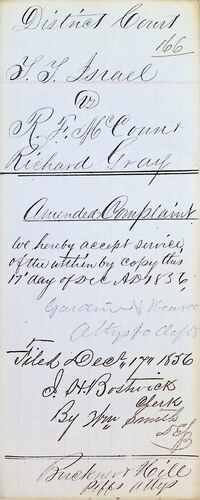 District Court
166
T. T. Israel
vs
R. F. McCoun &
Richard Gray
Amended Complaint
We hereby accept service
of the within by copy this
17th day of Dec AD 1856
Gardiner &
Attys for defts
Filed Dec. 17th 1856
J. H. Bostwick
Clerk
By Wm Smith
Buckner & Hill
Plffs attys